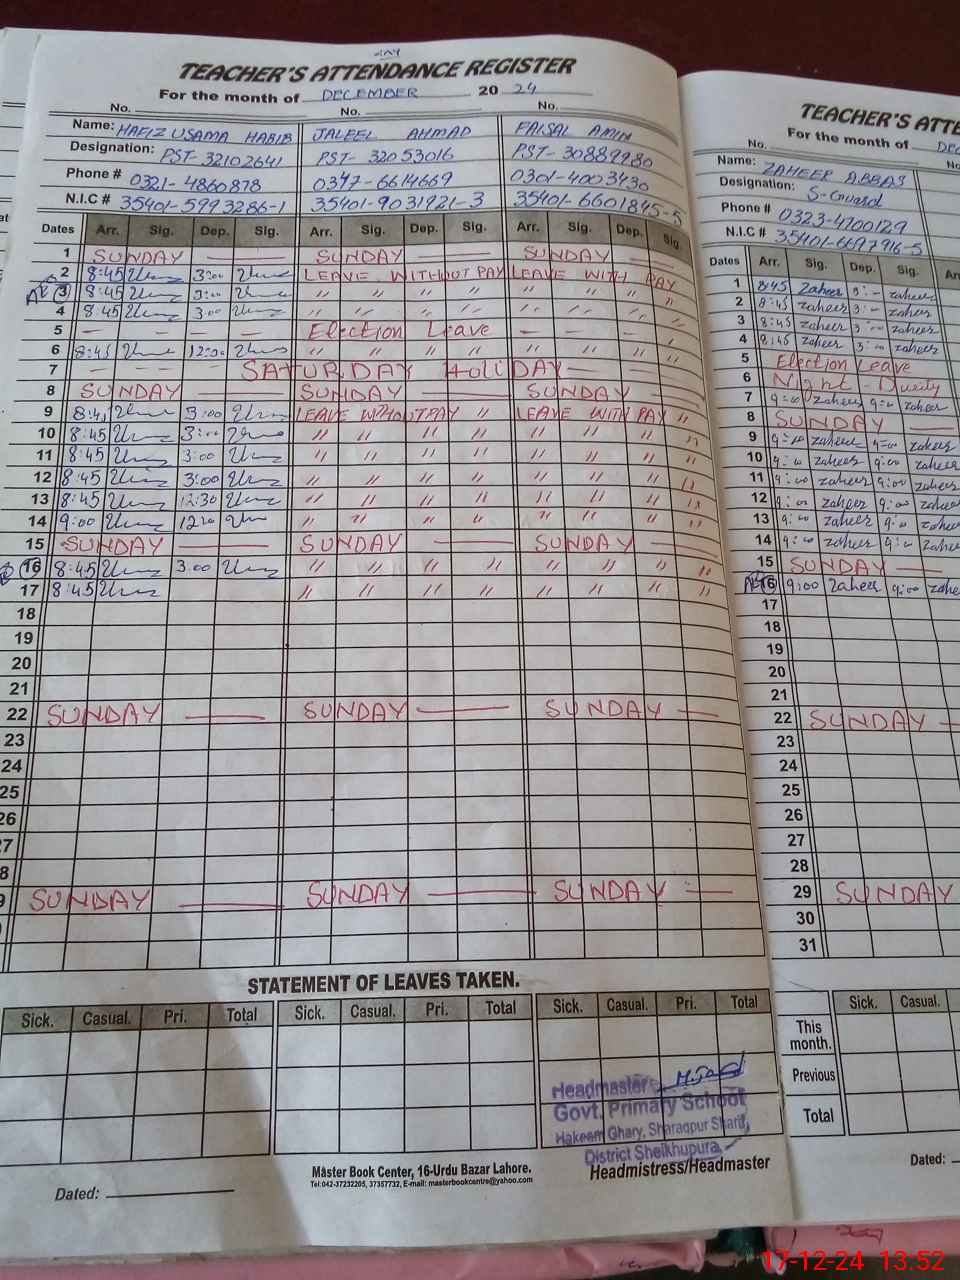 TEACHER'S ATTENDANCE REGISTER
For the month of DECEMBER 20 24
No. No. No.
Name: HAFIZ USAMA HABIB JALEEL AHMAD FAISAL AMIN
Designation: PST-32102641 PST-32053016 PST-30889980
Phone # 0321-4860878 0347-6614669 0301-4003430
N.I.C # 35401-5993286-1 35401-9031921-3 35401-6601845-5
Dates Arr. Sig. Dep. Sig. Arr. Sig. Dep. Sig. Arr. Sig. Dep. Sig.
1 SUNDAY — SUNDAY — SUNDAY —
2 8:45 3:00 LEAVE WITHOUT PAY LEAVE WITH PAY
3 8:45 3:00 " " " " " " " "
4 8:45 3:00 " " " " " " " "
5 — — — — Election Leave — — — —
6 8:45 12:00 " " " " " " " "
7 — — — SATURDAY HoliDAY — —
8 SUNDAY — SUNDAY — SUNDAY —
9 8:45 3:00 LEAVE WITHOUT PAY " LEAVE WITH PAY "
10 8:45 3:00 " " " " " " " "
11 8:45 3:00 " " " " " " " "
12 8:45 3:00 " " " " " " " "
13 8:45 12:30 " " " " " " " "
14 9:00 " " " " " " " "
15 SUNDAY — SUNDAY — SUNDAY —
16 8:45 3:00 " " " " " " " "
17 8:45 " " " " " " " "
18
19
20
21
22 SUNDAY — SUNDAY — SUNDAY —
23
24
25
26
27
8
9 SUNDAY — SUNDAY — SUNDAY —
STATEMENT OF LEAVES TAKEN.
Sick. Casual. Pri. Total Sick. Casual. Pri. Total Sick. Casual. Pri. Total
Headmaster
Govt. Primary School
Hakeem Ghary, Sharaqpur Sharif,
District Sheikhupura
Headmistress/Headmaster
Master Book Center, 16-Urdu Bazar Lahore.
Tel:042-37232205, 37357732, E-mail: masterbookcentre@yahoo.com
Dated:
TEACHER'S ATTE
For the month of DEC
No. No
Name: ZAHEER ABBAS
Designation: S-Guard
Phone # 0323-4700129
N.I.C # 35401-6697916-5
Dates Arr. Sig. Dep. Sig. Arr
1 8:45 Zaheer 3:- zaheer
2 8:45 zaheer 3:- zaheer
3 8:45 zaheer 3:- zaheer
4 8:45 zaheer 3:- zaheer
5 Election Leave
6 Night - Duety
7 9:00 zaheer 9:00 zaheer
8 SUNDAY —
9 9:00 zaheer 9:00 zaheer
10 9:00 zaheer 9:00 zaheer
11 9:00 zaheer 9:00 zaheer
12 9:00 zaheer 9:00 zaheer
13 9:00 zaheer 9:00 zaheer
14 9:00 zaheer 9:00 zaheer
15 SUNDAY —
16 9:00 Zaheer 9:00 zahe
17
18
19
20
21
22 SUNDAY —
23
24
25
26
27
28
29 SUNDAY
30
31
Sick. Casual.
This month.
Previous
Total
Dated:
17-12-24 13:52